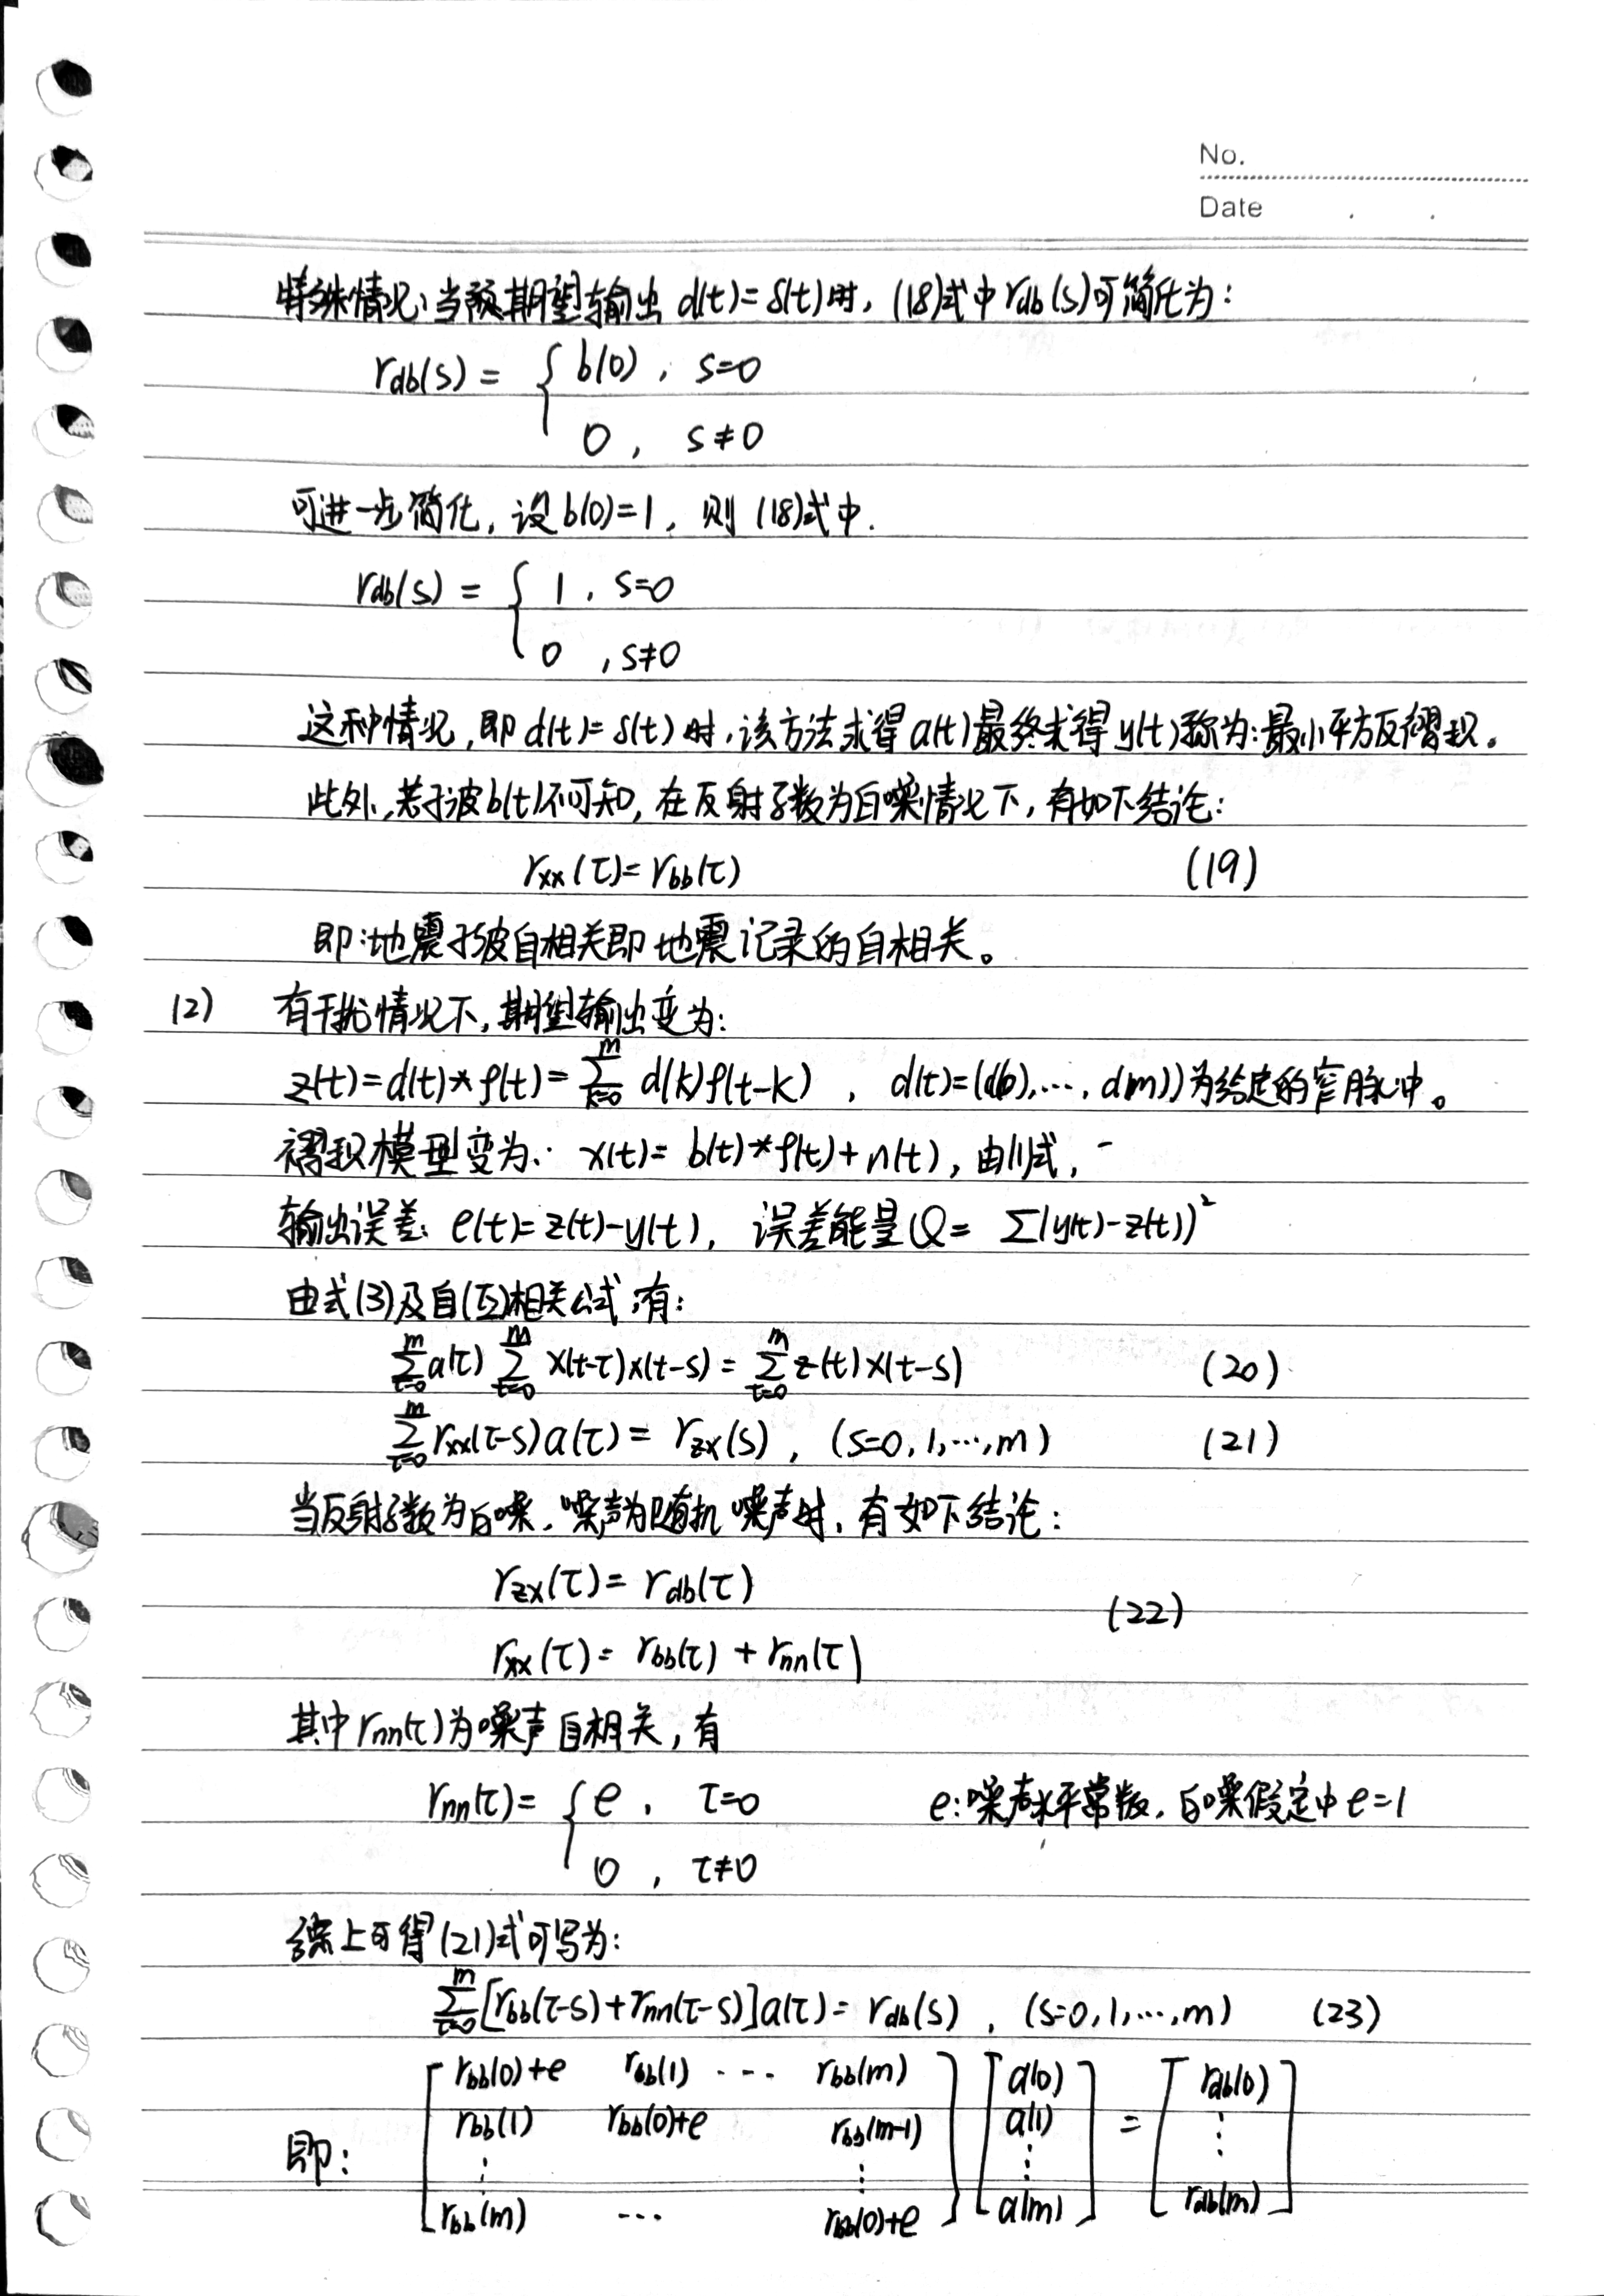 No.
Date
特殊情况:当预期望输出 d(t)=δ(t)时, (18)式中 r_db(s)可简化为:
r_db(s) = { b(0), s=0
0, s≠0
可进一步简化, 设 b(0)=1, 则 (18)式中.
r_db(s) = { 1, s=0
0, s≠0
这种情况, 即 d(t)=δ(t)时,该方法求得 a(t)最终求得 y(t)称为:最小平方反褶积。
此外,若子波b(t)不可知, 在反射系数为白噪情况下, 有如下结论:
r_xx(τ)=r_bb(τ) (19)
即:地震子波自相关即地震记录的自相关。
(2) 有干扰情况下, 期望输出变为:
z(t)=d(t)*ρ(t)=∑_{k=0}^{m} d(k)ρ(t-k) , d(t)=(d(0),…, d(m))为给定的窄脉冲。
褶积模型变为: x(t)= b(t)*ρ(t)+n(t), 由(1)式,
输出误差: e(t)=z(t)-y(t), 误差能量Q= ∑(y(t)-z(t))²
由式(3)及自(互)相关公式,有:
∑_{τ=0}^{m} a(τ) ∑_{t=0}^{m} x(t-τ)x(t-s) = ∑_{t=0}^{m} z(t)x(t-s) (20)
∑_{τ=0}^{m} r_xx(τ-s)a(τ) = r_zx(s), (s=0,1,…,m) (21)
当反射系数为白噪,噪声为随机噪声时, 有如下结论:
r_zx(τ)= r_db(τ)
(22)
r_xx(τ)= r_bb(τ) + r_nn(τ)
其中 r_nn(τ)为噪声自相关, 有
r_nn(τ)= { e, τ=0 e:噪声水平常数, 白噪假定中 e=1
0, τ≠0
综上可得(21)式可写为:
∑_{τ=0}^{m} [r_bb(τ-s)+r_nn(τ-s)]a(τ)= r_db(s), (s=0,1,…,m) (23)
[ r_bb(0)+e r_bb(1) … r_bb(m) ] [ a(0) ] [ r_db(0) ]
r_bb(1) r_bb(0)+e r_bb(m-1) a(1) = ⋮
即: ⋮ ⋮ ⋮
r_bb(m) … r_bb(0)+e a(m) r_db(m)